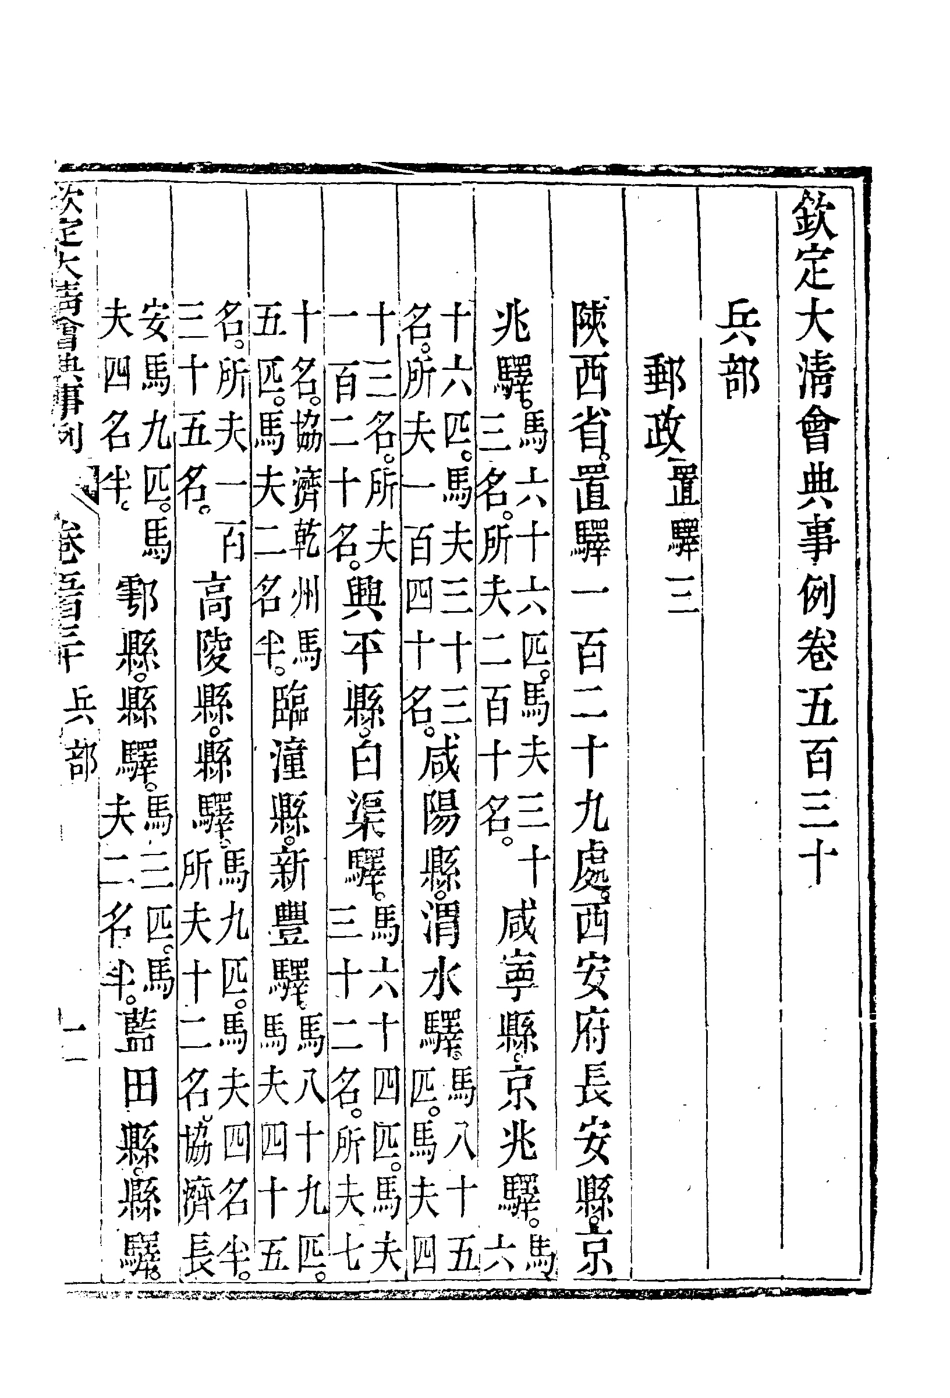 欽定大清會典事例卷五百三十
兵部
郵政 置驛三
陝西省。置驛一百二十九處。西安府長安縣。京
兆驛。馬六十六匹。馬夫三十三名。所夫二百十名。咸寧縣。京兆驛。馬六
十六匹。馬夫三十三名。所夫一百四十名。咸陽縣。渭水驛。馬八十五匹。馬夫四
十三名。所夫一百二十名。興平縣。白渠驛。馬六十四匹。馬夫三十二名。所夫七
十名。協濟乾州馬五匹。馬夫二名半。臨潼縣。新豐驛。馬八十九匹。馬夫四十五
名。所夫一百三十五名。高陵縣。縣驛。馬九匹。馬夫四名半。所夫十二名。協濟長
安馬九匹。馬夫四名半。鄠縣。縣驛。馬三匹。馬夫二名半。藍田縣。縣驛。
欽定大清會典事例 卷五百三十 兵部 一